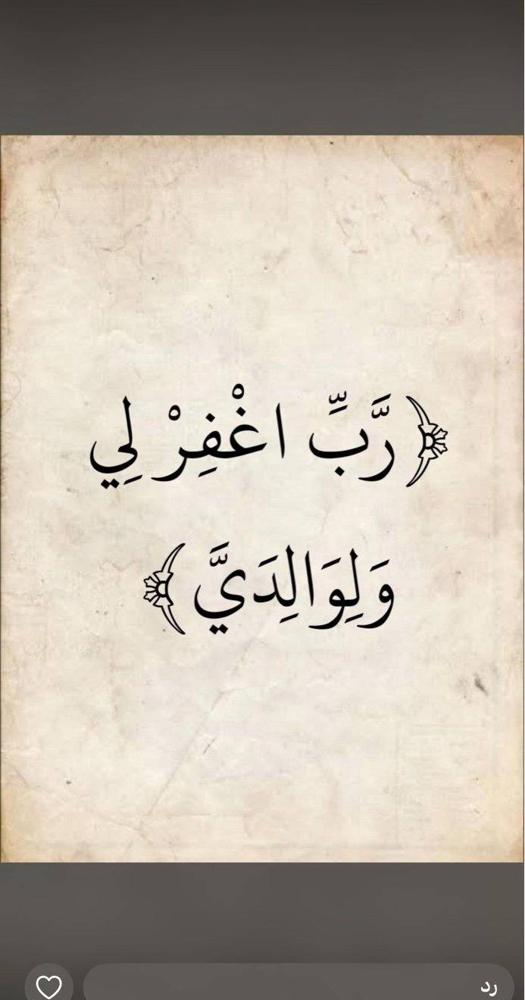 ﴿رَّبِّ اغْفِرْ لِي
وَلِوَالِدَيَّ﴾
رد